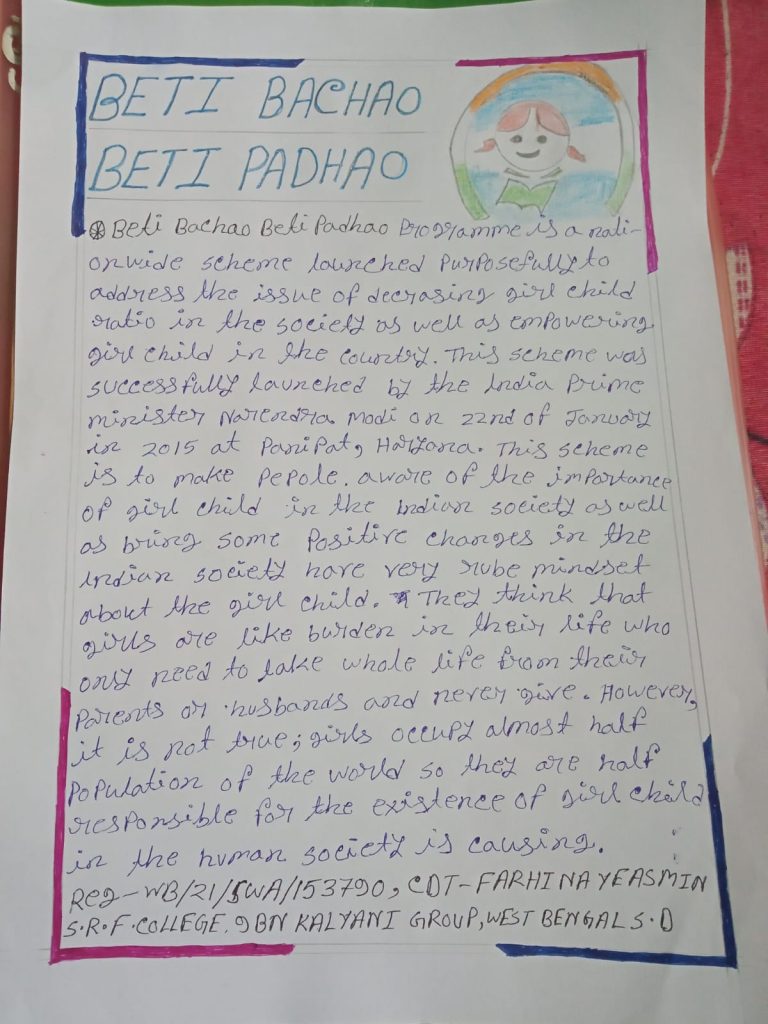 BETI BACHAO
BETI PADHAO
Beti Bachao Beti Padhao Programme is a nati-
onwide scheme launched purposefully to
address the issue of decrasing girl child
ratio in the society as well as empowering
girl child in the country. This scheme was
successfully launched by the India Prime
minister Narendra Modi on 22nd of January
in 2015 at Panipat, Haryana. This scheme
is to make pepole aware of the importance
of girl child in the Indian society as well
as bring some positive changes in the
Indian society have very rube mindset
about the girl child. They think that
girls are like burden in their life who
only need to take whole life from their
parents or husbands and never give. However,
it is not true; girls occupy almost half
population of the world so they are half
responsible for the existence of girl child
in the human society is causing.
Reg-WB/21/SWA/153790, CDT-FARHINA YEASMIN
S.R.F.COLLEGE. 9BN KALYANI GROUP, WEST BENGAL S.D